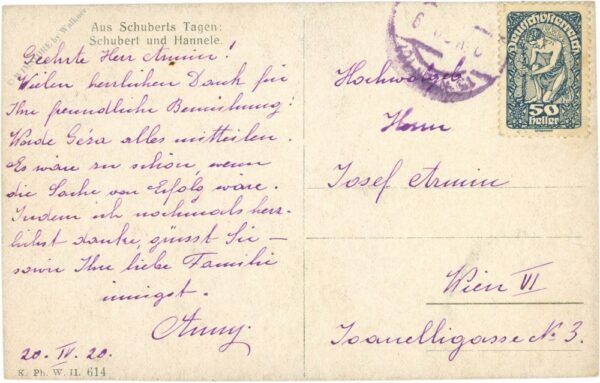 Aus Schuberts Tagen:
Schubert und Hannele.
Geehrte Herr Armin!
Vielen, herzlichen Dank für
Ihre freundliche Bemühung!
Werde Géza alles mitteilen.
Es wäre zu schön, wenn
die Sache von Erfolg wäre.
Indem ich nochmals herz-
lichst danke, grüsst Sie –
sowie Ihre liebe Familie
innigst.
Anny.
20. IV. 20.
K. Ph. W. II. 614
Deutschösterreich
50
Heller
Hochwohlgeb.
Herrn
Josef Armin
Wien VI
Joanelligasse No 3.